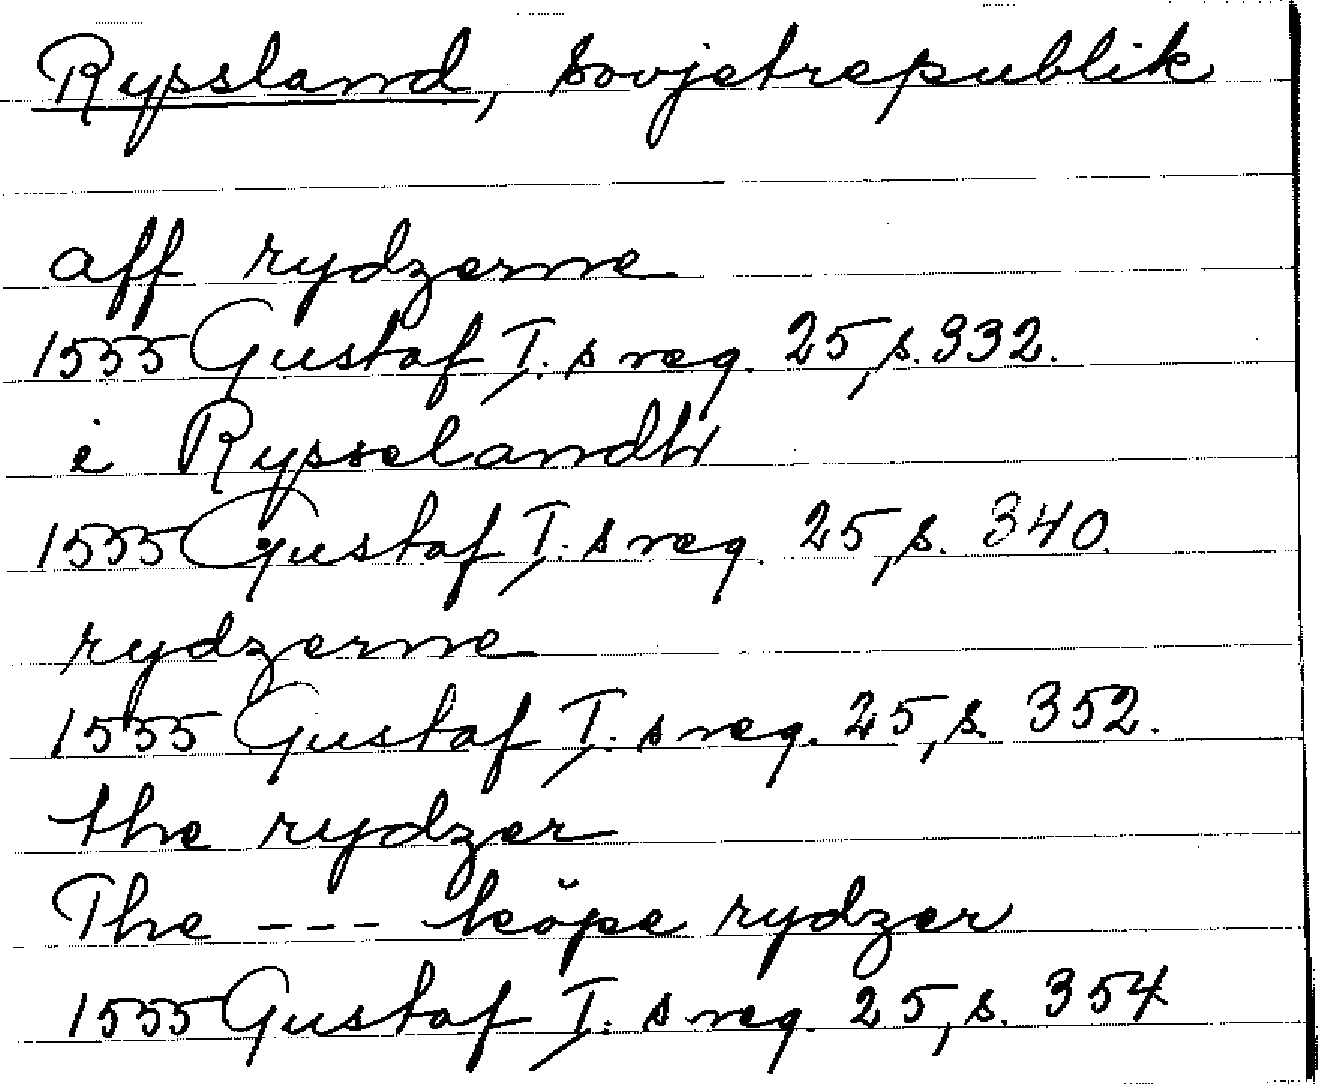 Ryssland, Sovjetrepublik
aff rydzerne
1555 Gustaf I:s reg. 25, s. 332.
i Rysselandh
1555 Gustaf I:s reg. 25, s. 340.
rydzerne
1555 Gustaf I:s reg. 25, s. 352.
the rydzer
The --- köpe rydzer
1555 Gustaf I:s reg. 25, s. 354